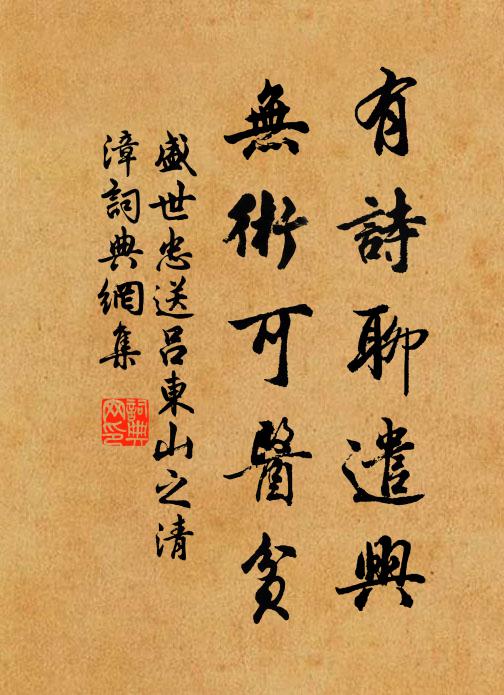 有詩聊遣興
無術可醫貧
盛世忠送呂東山之清
漳詞典網集
詞典網印